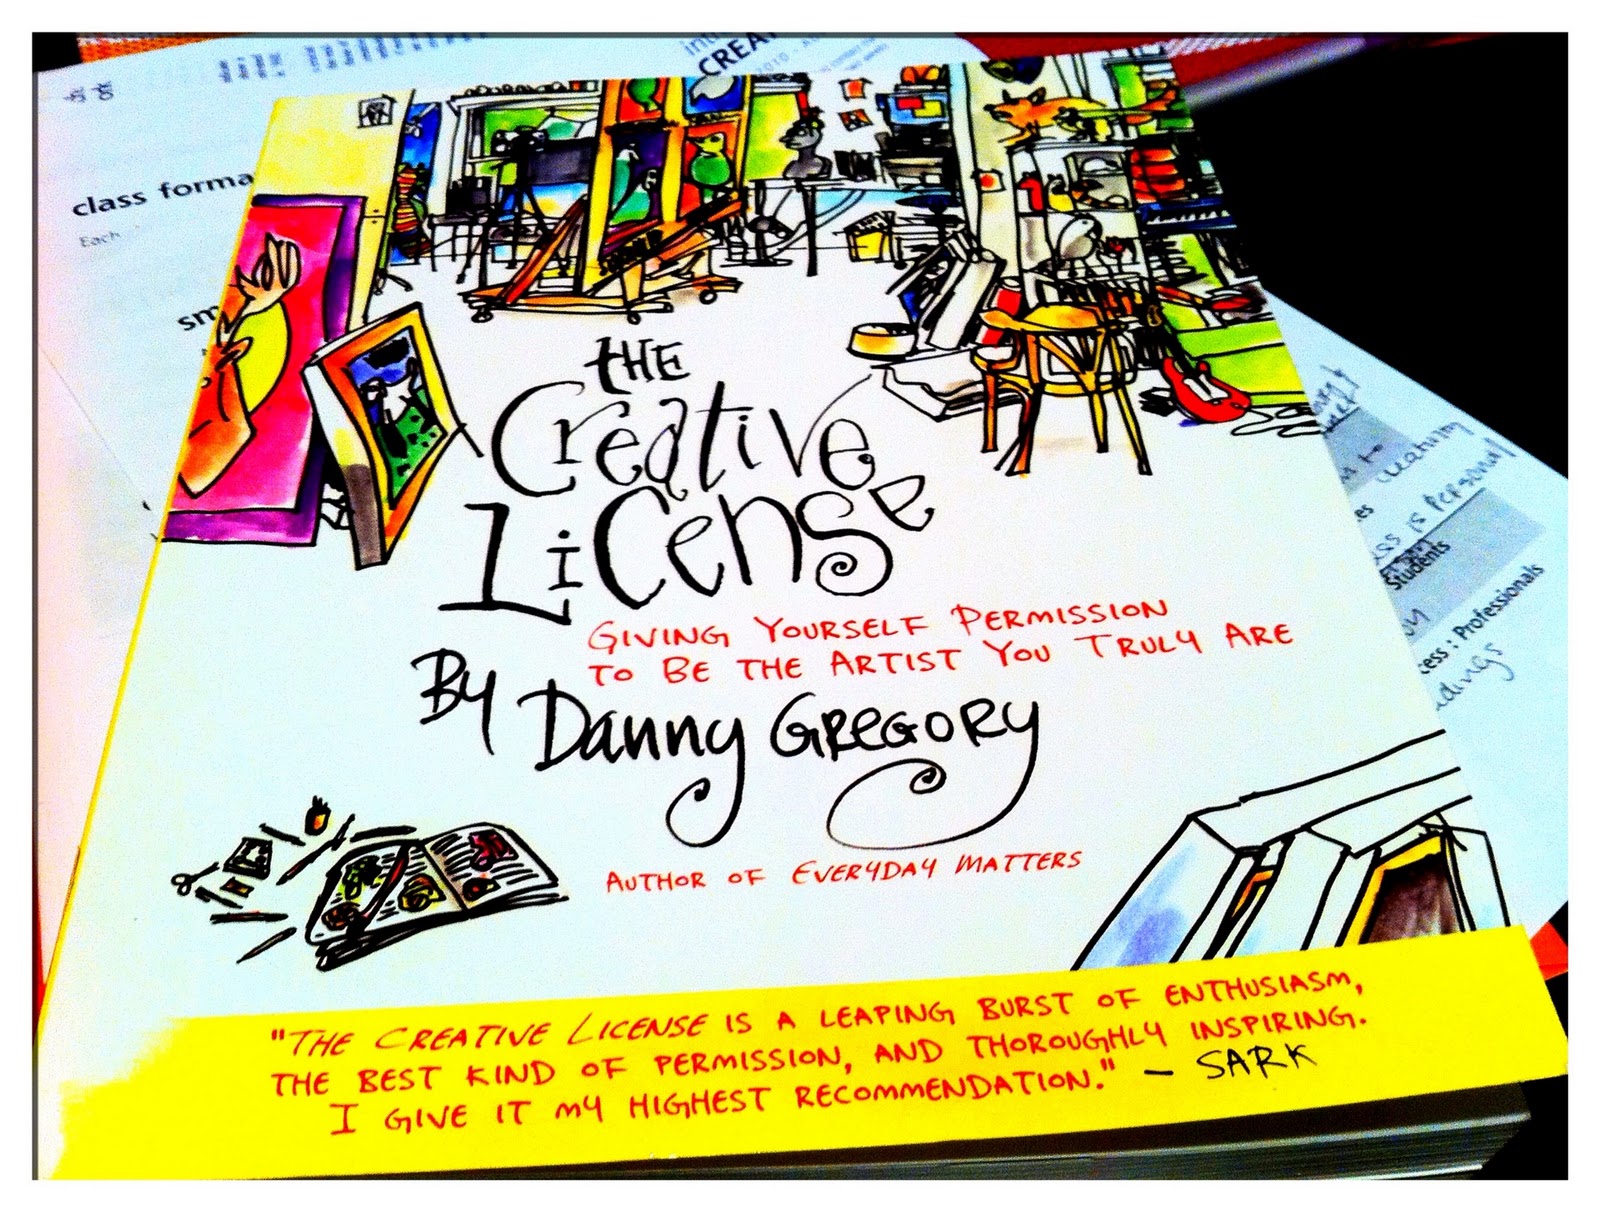 CREA
2010
class forma
Each
sm
THE
Creative
License
GIVING YOURSELF PERMISSION
TO BE THE ARTIST YOU TRULY ARE
By Danny GREGORY
AUTHOR OF EVERYDAY MATTERS
"THE CREATIVE LICENSE IS A LEAPING BURST OF ENTHUSIASM,
THE BEST KIND OF PERMISSION, AND THOROUGHLY INSPIRING.
I GIVE IT MY HIGHEST RECOMMENDATION." — SARK
to
creativity
ss is personal
Students
cess: Professionals